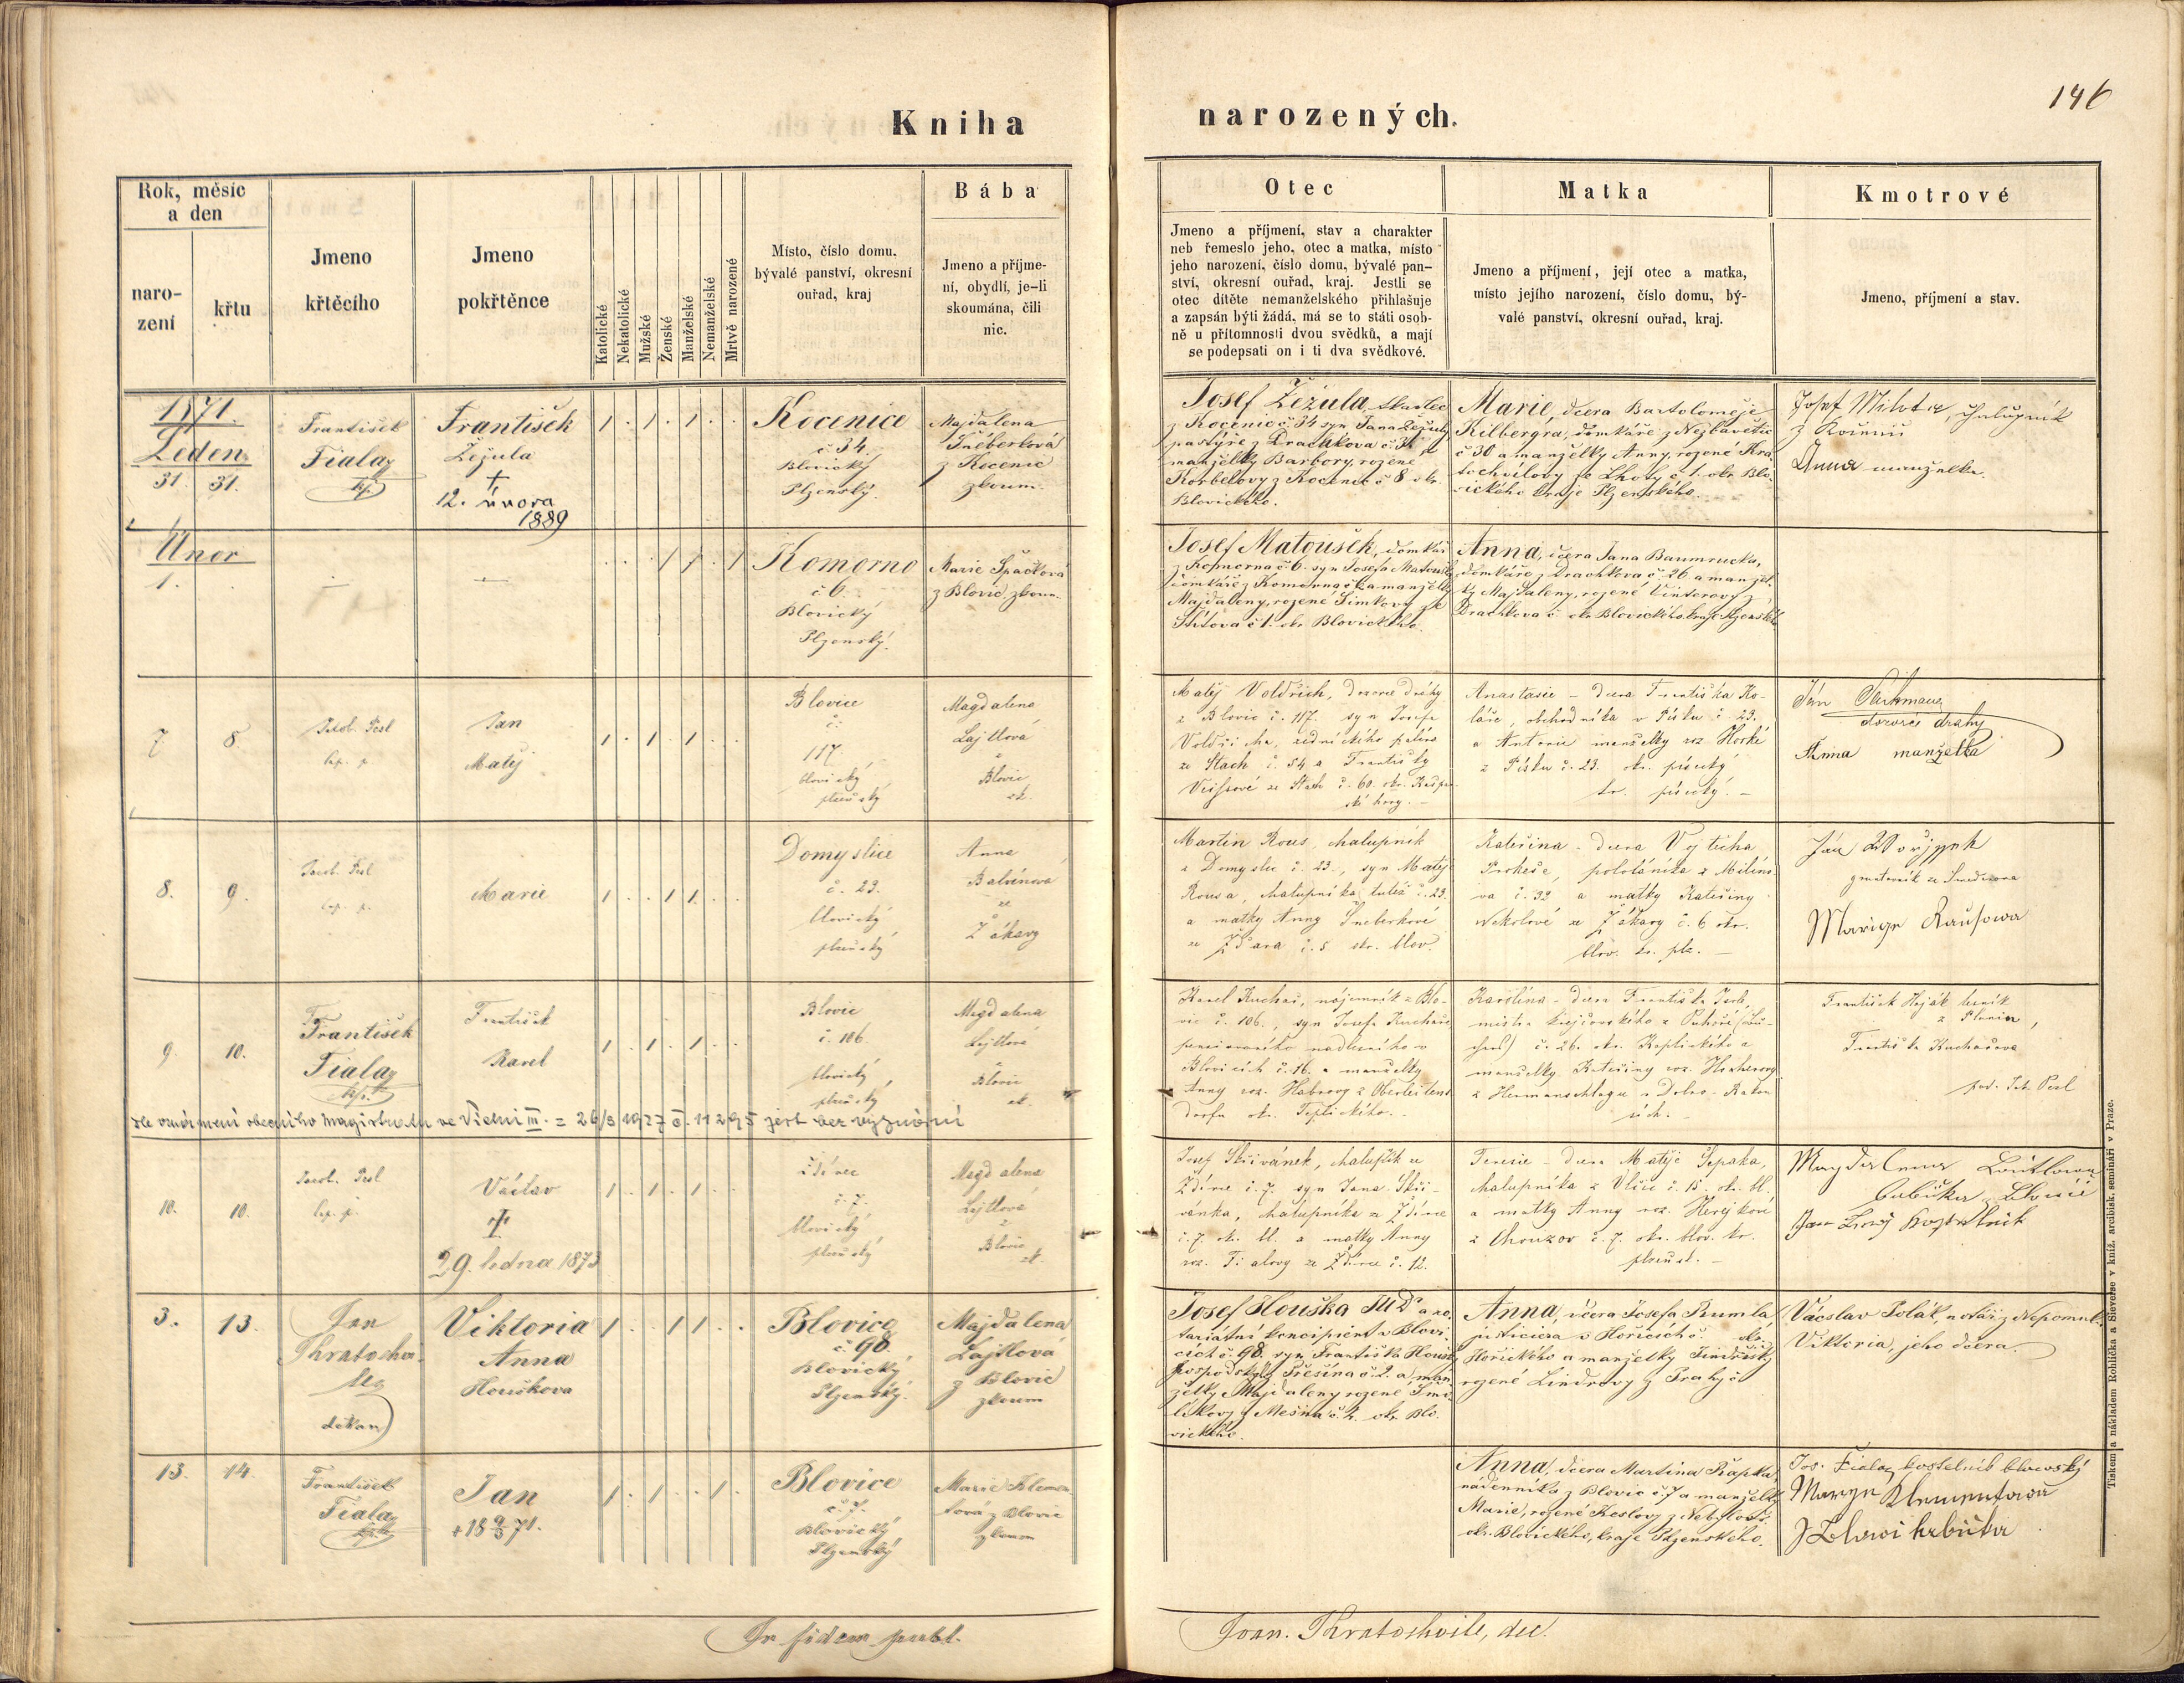 146
Kniha narozených.
Rok, měsíc
a den
naro-
zení
křtu
Jmeno
křtěcího
Jmeno
pokřtěnce
Katolické
Nekatolické
Mužské
Ženské
Manželské
Nemanželské
Mrtvě narozené
Místo, číslo domu,
bývalé panství, okresní
ouřad, kraj
Bába
Jmeno a příjme-
ní, obydlí, je-li
skoumána, čili
nic.
Otec
Jmeno a příjmení, stav a charakter
neb řemeslo jeho, otec a matka, místo
jeho narození, číslo domu, bývalé pan-
ství, okresní ouřad, kraj. Jestli se
otec dítěte nemanželského přihlašuje
a zapsán býti žádá, má se to státi osob-
ně u přítomnosti dvou svědků, a mají
se podepsati on i ti dva svědkové.
Matka
Jmeno a příjmení, její otec a matka,
místo jejího narození, číslo domu, bý-
valé panství, okresní ouřad, kraj.
Kmotrové
Jmeno, příjmení a stav.
1871.
Leden
31. 31.
František
Fiala
kp.
František
Žežula
†
12. února
1889
1 . 1 . 1 . .
Kocenice
č 34.
Blovický
Plzenský.
Majdalena
z Kocenic
zkoum.
Josef Žežula
z Kocenic č 34 syn Jana Žežuly
pastýře z Drachkova č 3
manželky Barbory, rozené
Korbelovy z Kocenic č 8 okr.
Blovického.
Marie, dcera Bartoloměje
Kilbergra, domkáře z Nezbavětic
č 30 a manželky Anny, rozené Kra-
tochvílovy ze Lhoty č 1. okr. Blo-
vického kraje Plzenského.
Josef Milota, chalupník
Anna manželka.
Unor
1. — —
. . . 1 1 . 1
Komorno
č 6.
Blovický
Plzenský.
Marie Špačková
z Blovic, zkoum.
Josef Matoušek, domkář
z Komorna č 6. syn Josefa Matouška
domkáře z Komorna č 2 a manželky
Majdaleny, rozené Šimkovy ze
Štítova č 1. okr. Blovického.
Anna, dcera Jana Baumrucka,
domkáře z Drachkova č 26 a manžel-
ky Majdaleny, rozené Vinterovy z
Drachkova č okr. Blovického, kraje Plzenského
7 8
Jakob. Pesl
kap. p.
Jan
Matěj
1 . 1 . 1 . .
Blovice
č.
117.
blovický
plzeňský
Magdalena
Lajtlová
z
Blovic
zk.
Matěj Voldřich, dozorce dráhy
z Blovic č. 117. syn Josefa
Voldřicha, zednického
ze Stach č. 54 a Františky
ze Stach č. 60. okr. Kašpe-
rské hory. —
Anastasie – dcera Františka Ko-
láře, obchodníka v Písku č 23.
a Antonie manželky roz. Horké
z Písku č. 23. okr. písecký
kr. písecký. —
Ján
dozorce drahy
Anna manželka
8. 9.
Jacob. Pesl
kap. p.
Marie
1 . . 1 1 . .
Domyslice
č. 23.
blovický
plzeňský
Anna
Balvínova
ze
Žákavy
Martin Rous, chalupník
z Domyslic č. 23., syn Matěje
Rousa, chalupníka tutéž č. 23.
a matky Anny Šneberkové
ze Žďara č. 5 okr. blov.
Kateřina – dcera Vojtěcha
Prokeše, pololáníka z Milíno-
va č. 32 a matky Kateřiny
Nekolové ze Žákavy č. 6 okr.
blov. kr. plz. —
9. 10.
František
Fiala
kp.
František
Karel
1 . 1 . 1 . .
Blovic
č. 106.
blovický
plzeňský
Magdalena
Lajtlová
z
Blovic
zk.
Karel Kuchař, nájemník z Blo-
vic č. 106., syn Josefa Kuchaře
pensionovaného nadlesního v
Blovicích č. 16. a manželky
Anny roz. Habrovy z Oberleitens-
dorfu okr. Teplického.
Karolina – dcera Františka
mistra krejčovského z
č. 26. okr. Kaplického a
manželky Kateřiny roz.
z Hermannschlagu v Dolno- Rakou-
sích.
František Hoják
z Planin,
Františka Kuchařova
pod. Jak. Pesl
dle oznámení obecního magistrátu ve Vídni III. = 26/3 1927 č. 11295 jest bez vyznání
10. 10.
Jacob. Pesl
kap. p.
Václav
†
29. ledna 1873
1 . 1 . 1 . .
Ždírec
č. 7.
blovický
plzeňský
Magdalena
Lajtlová
z
Blovic
zk.
Josef Skřivánek, chalupník ze
Ždírce č. 7. syn Jana Skři-
vánka, chalupníka ze Ždírce
č. 7. okr. bl. a matky Anny
roz. Fialovy ze Ždírce č. 12.
Teresie – dcera Matěje Sepaka,
chalupníka z Vlčic č. 15. okr. bl.
a matky Anny roz. Herejkové
z Chouzov č. 7. okr. blov. kr.
plzeňsk. —
Magdalena
3. 13.
Jan
Kratochvi-
le
děkan
Viktoria
Anna
Houškova
1 . . 1 1 . .
Blovice
č 98.
Blovický
Plzenský.
Majdalena
Lajtlová
z Blovic
zkoum
Josef Houška JUDr a no-
tariátní koncipient v Blovi-
cích č. 98. syn Františka Houšky
hospodského z Přešína č 2. a man-
želky Majdaleny rozené Smo-
líkovy z Mešna č 2. okr. Blo-
vického.
Anna, dcera Josefa Rumla
justiciara v Hořicích č. okr.
Hořického a manželky Jindřišky
rozené Lindrovy z Prahy č
Václav Polák, notář z Nepomuk.
Viktoria, jeho dcera.
13. 14.
František
Fiala
kp.
Jan
+ 18 9/3 71.
1 . 1 . . 1 .
Blovice
č 7.
Blovický
Plzenský
Marie Klemen-
tová z Blovic
zkoum
Anna, dcera Martina Řapka,
nádenníka z Blovic č. 7 a manželky
Marie, rozené Keslovy z Nebílov č
okr. Blovického, kraje Plzenského.
Jos. Fiala, kostelník blovický
Marye Klementowa
In fidem publ. Joan. Kratochvile, dec.
Tiskem a nákladem Rohlíčka a Sieverse v kníž. arcibisk. semináři v Praze.